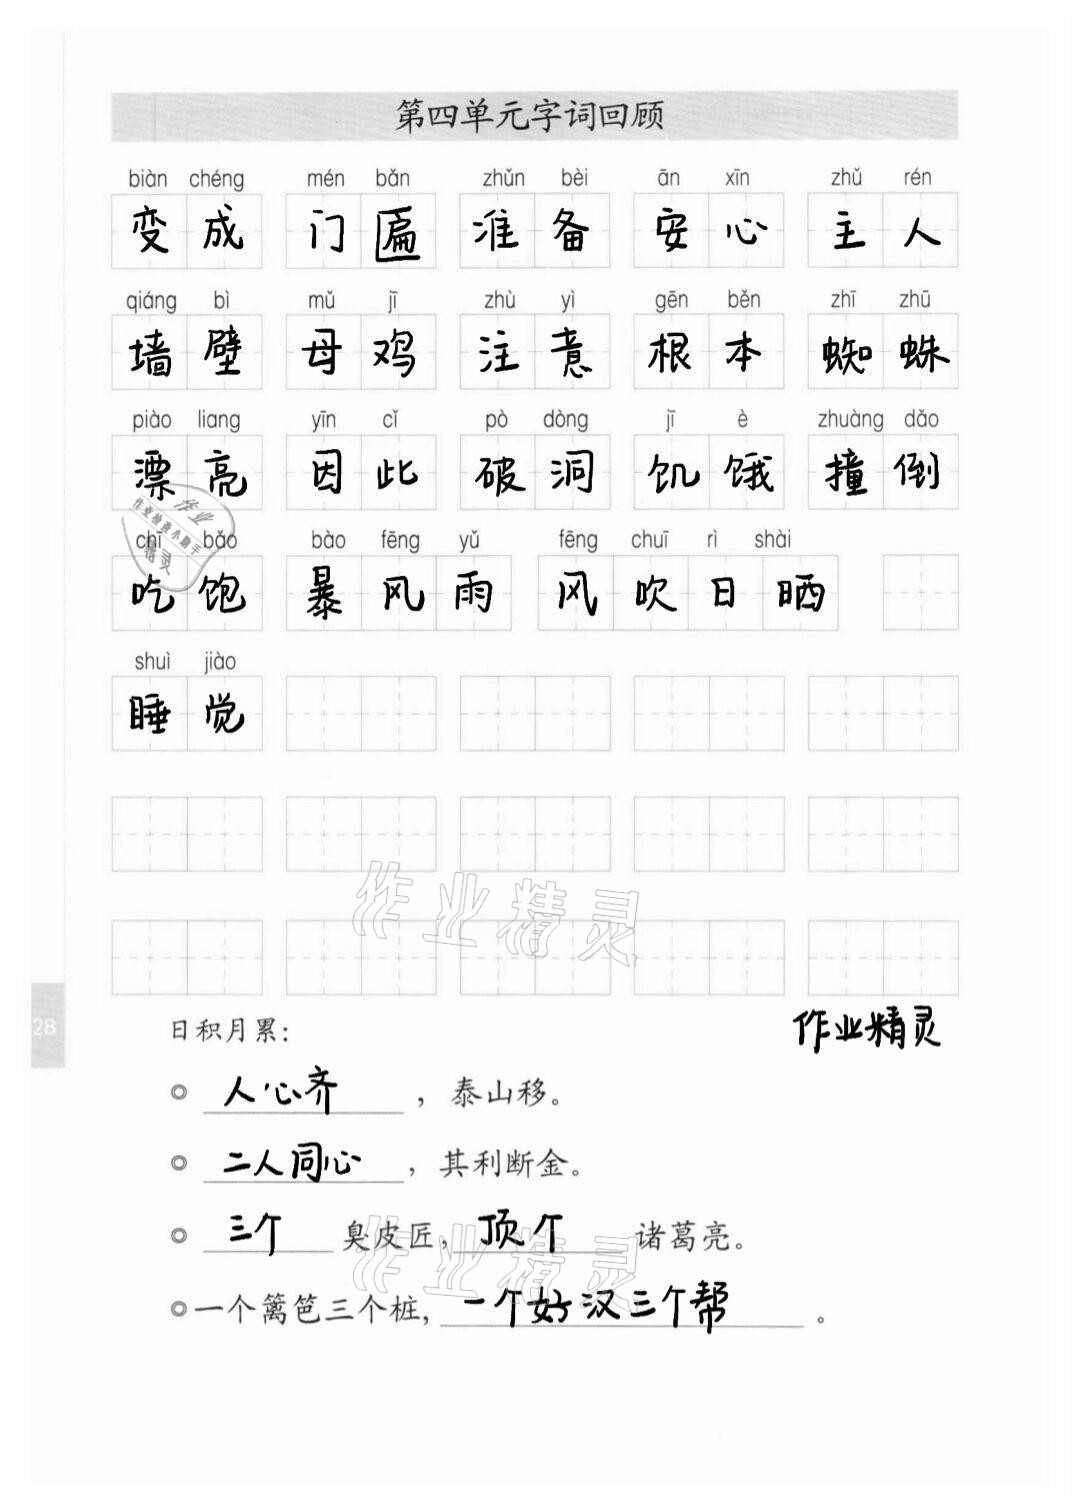 第四单元字词回顾
biàn chéng mén bǎn zhǔn bèi ān xīn zhǔ rén
变成 门匾 准备 安心 主人
qiáng bì mǔ jī zhù yì gēn běn zhī zhū
墙壁 母鸡 注意 根本 蜘蛛
piào liang yīn cǐ pò dòng jī è zhuàng dǎo
漂亮 因此 破洞 饥饿 撞倒
chī bǎo bào fēng yǔ fēng chuī rì shài
吃饱 暴风雨 风吹日晒
shuì jiào
睡觉
作业
作业检查小助手
精灵
作业精灵
28
日积月累：
作业精灵
◎ 人心齐，泰山移。
◎ 二人同心，其利断金。
◎ 三个臭皮匠，顶个诸葛亮。
作业精灵
◎ 一个篱笆三个桩，一个好汉三个帮。